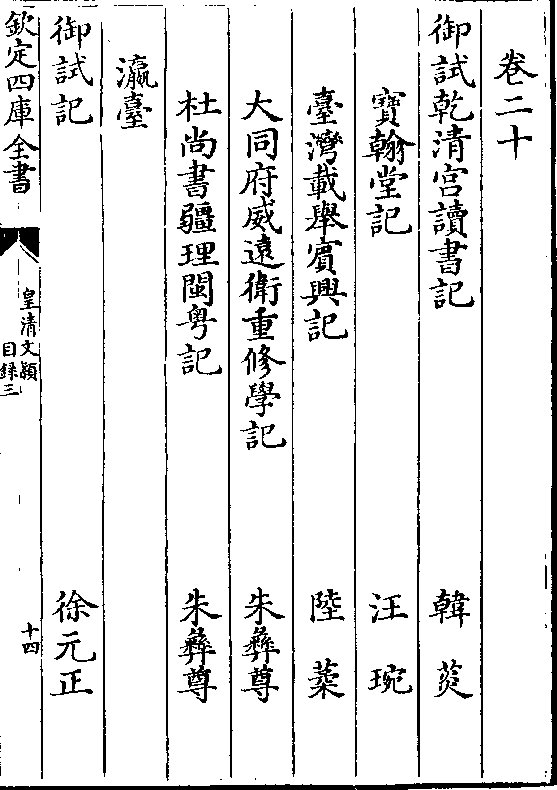 卷二十
御試乾清宮讀書記 韓菼
寶翰堂記 汪琬
臺灣載舉賓興記 陸葇
大同府威遠衛重修學記 朱彝尊
杜尚書疆理閩粤記 朱彝尊
瀛臺
御試記 徐元正
欽定四庫全書
皇清文穎
目錄三
十四